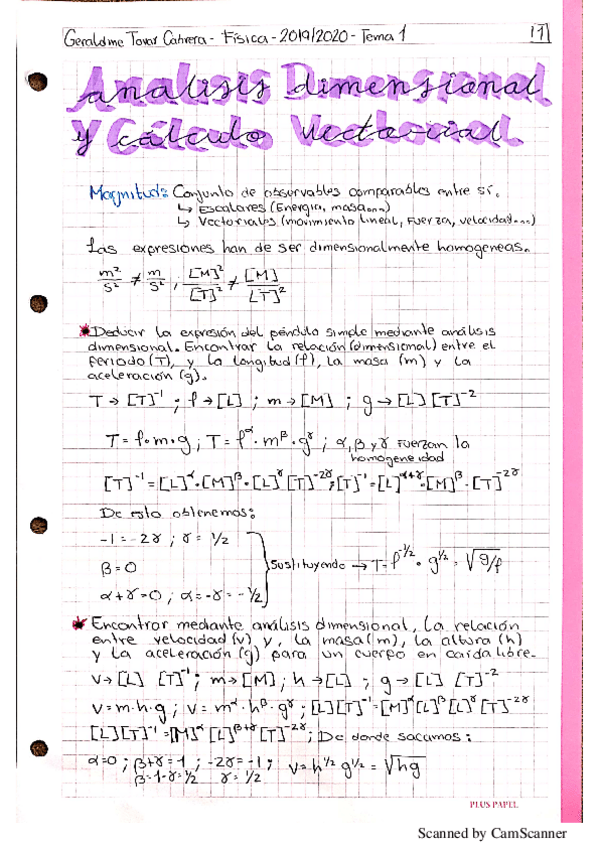 Geraldine Tovar Cabrera - Física - 2019/2020 - Tema 1
1
Analisis Dimensional
y Cálculo Vectorial
Magnitud: Conjunto de observables comparables entre sí.
↳ Escalares (Energía, masa...)
↳ Vectoriales (movimiento lineal, Fuerza, velocidad...)
Las expresiones han de ser dimensionalmente homogeneas.
m²/s² ≠ m/s² ; [M]²/[T]² ≠ [M]/[T]²
* Deducir la expresión del péndulo simple mediante análisis
dimensional. Encontrar la relación (dimensional) entre el
periodo (T), y la longitud (f), la masa (m) y la
aceleración (g).
T → [T]⁻¹ ; f → [L] ; m → [M] ; g → [L] [T]⁻²
T = f · m · g ; T = f^α · m^β · g^γ ; α, β y γ Fuerzan la
homogeneidad
[T]⁻¹ = [L]^α · [M]^β · [L]^γ [T]^-2γ ; [T]⁻¹ = [L]^α+γ · [M]^β · [T]^-2γ
De esto obtenemos:
-1 = -2γ ; γ = 1/2
β = 0
α + γ = 0 ; α = -γ = -1/2
Sustituyendo → T = f^-1/2 · g^1/2 = √g/f
* Encontrar mediante análisis dimensional, la relación
entre velocidad (v) y, la masa (m), la altura (h)
y la aceleración (g) para un cuerpo en caída libre.
v → [L] [T]⁻¹ ; m → [M] ; h → [L] ; g → [L] [T]⁻²
v = m · h · g ; v = m^α · h^β · g^γ ; [L][T]⁻¹ = [M]^α [L]^β [L]^γ [T]^-2γ
[L][T]⁻¹ = [M]^α [L]^β+γ [T]^-2γ ; De donde sacamos:
α = 0 ; β + γ = 1 ; -2γ = -1 ; v = h^1/2 g^1/2 = √hg
β = 1 - γ = 1/2 γ = 1/2
PLUS PAPEL
Scanned by CamScanner